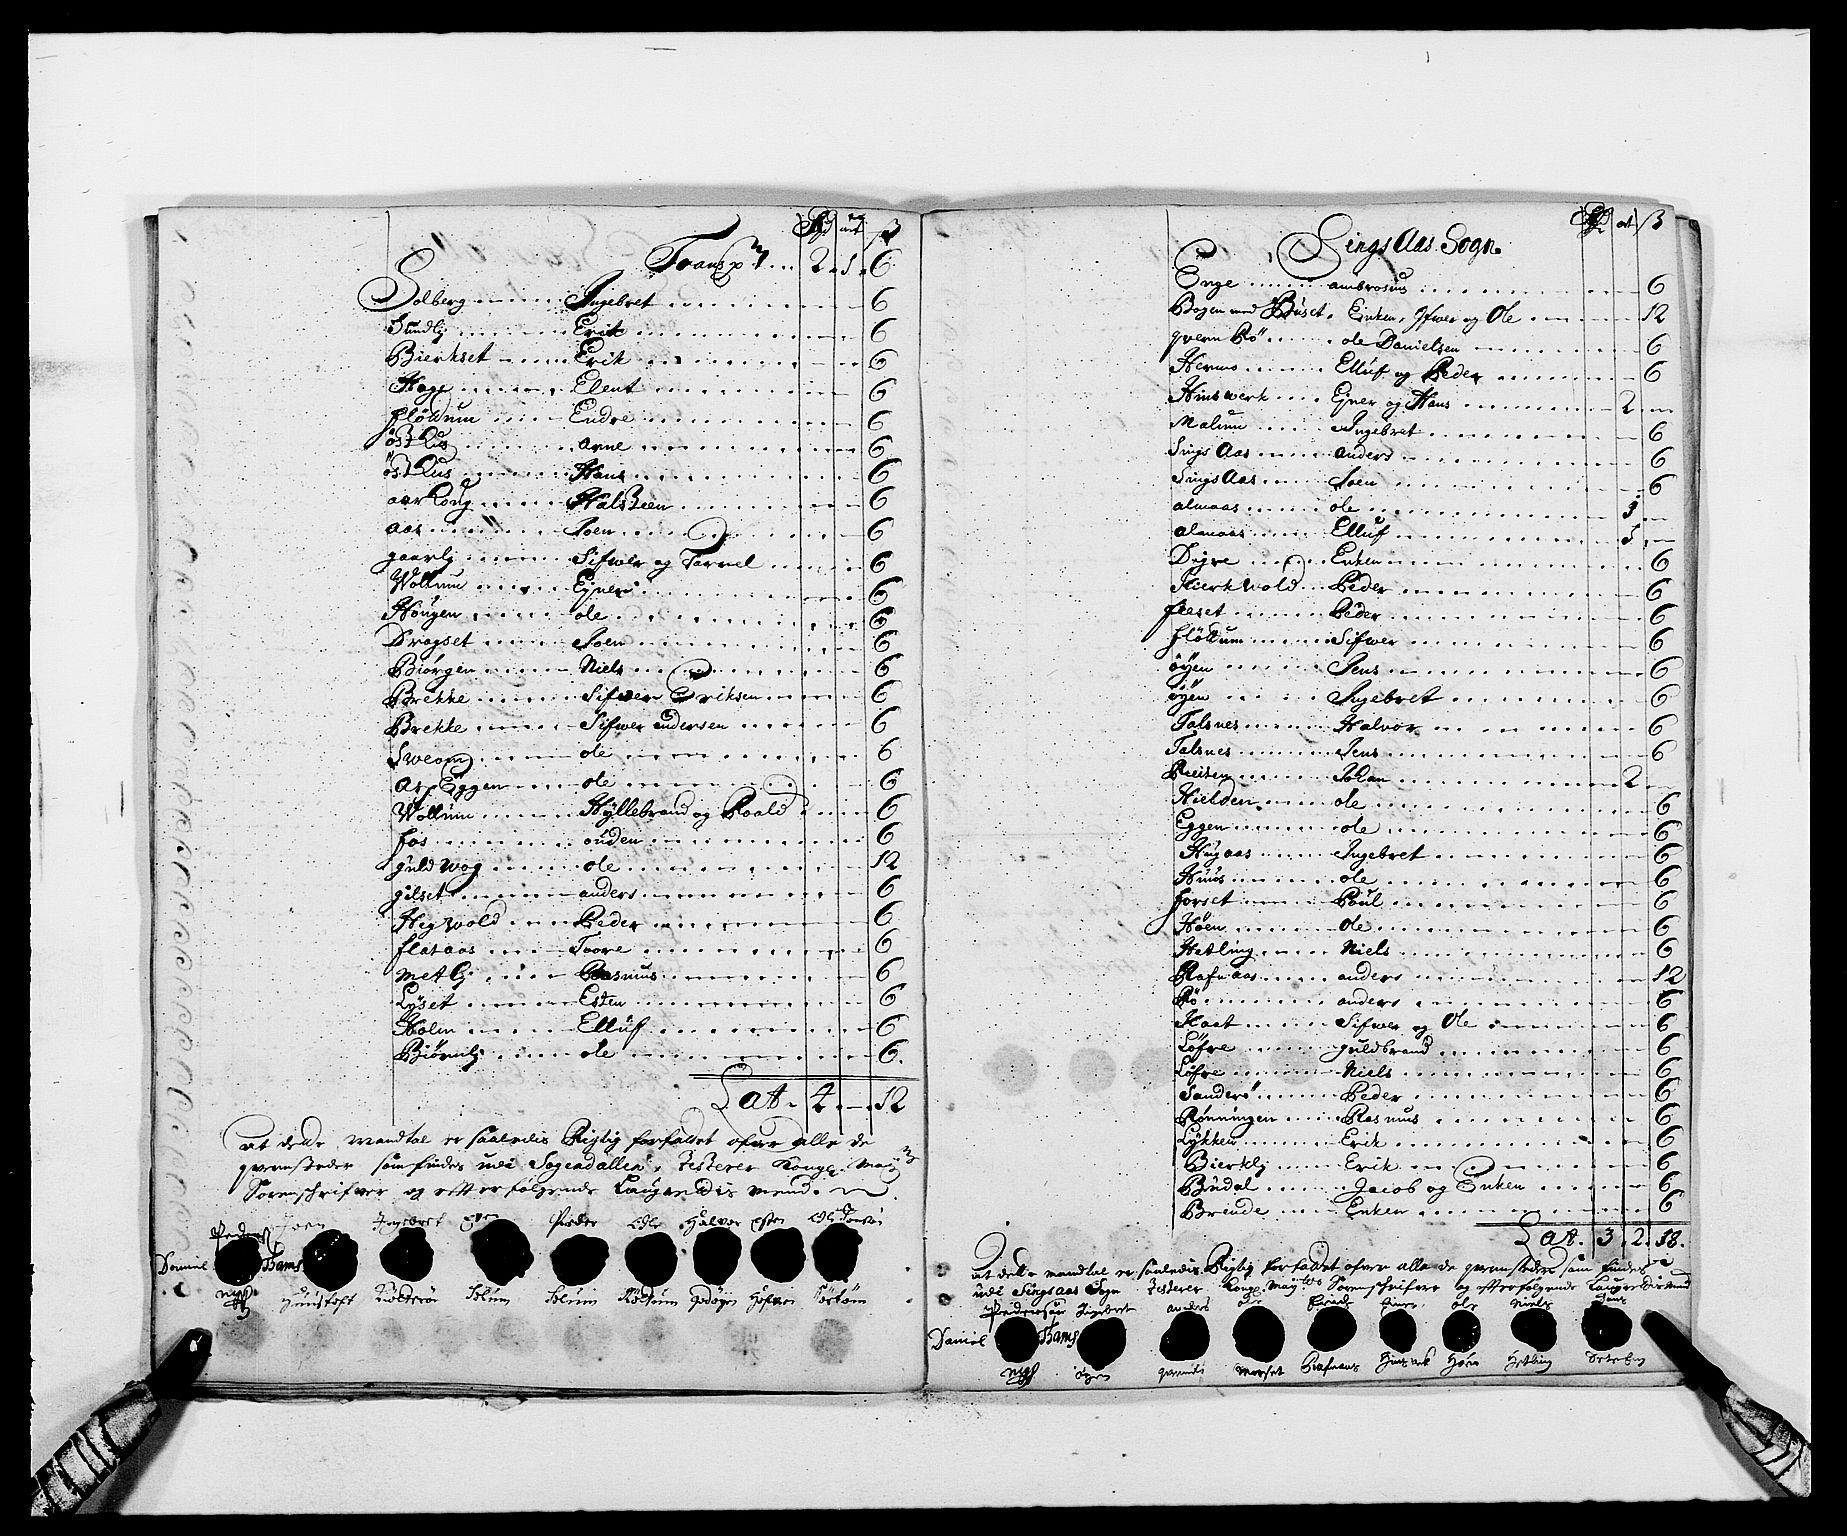 Rdr ort ß
Transpt ... 2. 1. 6
Solberg ... Ingebret ... 6
Sundli ... Erik ... 6
Bierkset ... Erik ... 6
Hage ... Elent ... 6
fløttum ... Endre ... 6
østhus ... arne ... 6
østhus ... Hans ... 6
aarhoug ... Halsteen ... 6
aas ... Joen ... 6
gaarlj ... Sifwer og Tarvel ... 6
Wollum ... Ejner ... 6
Hougen ... ole ... 6
Dragset ... Joen ... 6
Biørgen ... Niels ... 6
Brekke ... Sifwer Eriksen ... 6
Brekke ... Sifwer andersen ... 6
Sveom ... ole ... 6
aspEggen ... ole ... 6
Wollum ... Hyllebrand og Roald ... 6
fos ... ouden ... 6
guldwog ... ole ... 12
gilset ... anders ... 6
Hegwold ... Peder ... 6
flataas ... Toore ... 6
metlj ... Rasmus ... 6
Lyset ... Esten ... 6
Holm ... Elluf ... 6
Biørnlj ... ole ... 6.
Lat. 4. — . 12
at dette mandtal er saaledis Rigtig forfattet ofver alle de
quernsteder som findes udi Sogendallen, Testerer Kongl. May
Sorenschrifver og efterfølgende Laugrettis mend.
Joen Ingebret Even Peder Ole Halvor Esten Ole Joensøn
Daniel Pedersøn Bams
mpp Solum Solum Kottum

Rdr ort ß
SingsAas Sogn
Enge ... ambrosius ... 6
Bogen med Buset. Enken, Ifwer og Ole ... 12
quern Rø ... ole Danielsen ... 6
Hermo ... Elluf og Peder ... 6
Hinswerk ... Ejner og Hans ... 2 —
Malum ... Ingebret ... 6
SingsAas ... anders ... 6
SingsAas ... Joen ... 6
almaas ... ole ... 3 —
almaas ... Elluf ... 1 —
Digre ... Enken ... 6
Kierkwold ... Peder ... 6
flaset ... Peder ... 6
fløttum ... Sifwer ... 6
øyen ... Jens ... 6
øyen ... Ingebret ... 6
Talsnes ... Halvor ... 6
Talsnes ... Jens ... 6
Reiten ... Johan ... 2
Kielden ... ole ... 6
Eggen ... ole ... 6
Hugaas ... Ingebret ... 6
Hinøs ... ole ... 6
forset ... Poul ... 6
Høen ... Ole ... 6
Hetling ... Niels ... 6
Rafnaas ... anders ... 12
Rø ... anders ... 6
Kaat ... Sifwer og Ole ... 6
Løfre ... guldbrand ... 6
Løfre ... Niels ... 6
Sanderø ... Peder ... 6
Rønningen ... Rasmus ... 6
Lykken ... Erik ... 6
Bierklj ... Erik ... 6
Budal ... Jacob og Enken ... 6
Brende ... Enken ... 6
Lat. 3. 2. 18.
at dette mandtal er saaledis Rigtig forfattet ofver alle de quernsteder som findes
udi Singsaas Sogn Testerer Kongl. May:tts Sorenschrifver og efterfølgende Laugrettismend
Pedersøn Ingebret anders ole ole Niels Jens
Daniel Bams
mpp øyen Rafnaas Hinsverk Høen Hetling